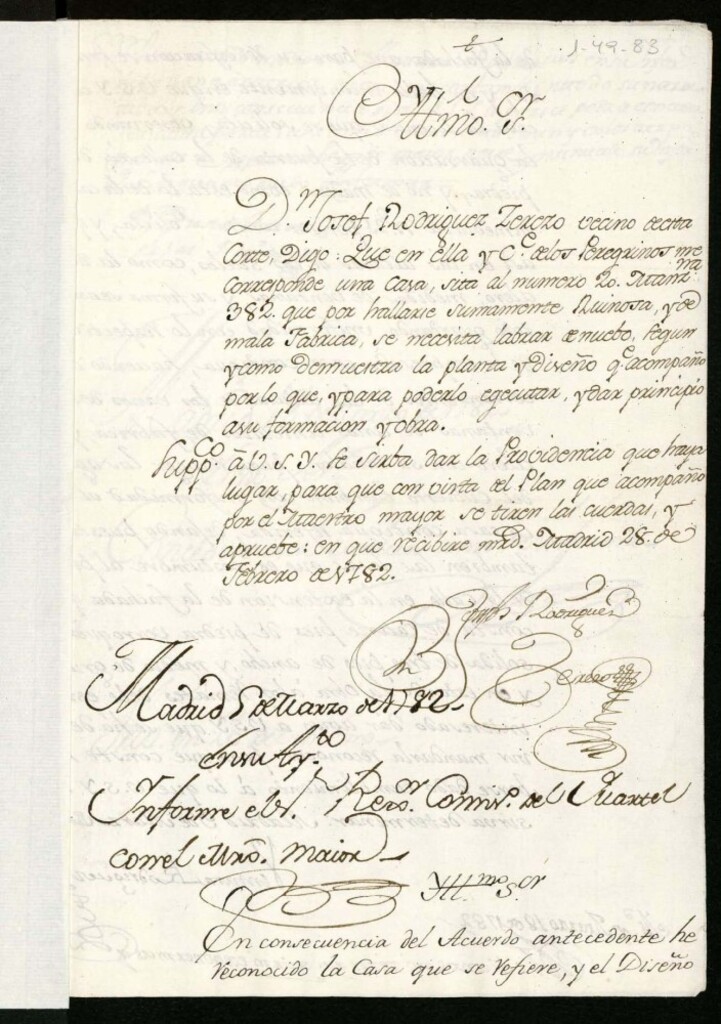 1-49-83
Yllmo. Sr.
Dn. Josef Rodriguez Zerezo vecino de esta
Corte, Digo: Que en ella y Ce. de los Peregrinos me
corresponde una Casa, sita al numero 20. Manzna.
382. que por hallarse sumamente Ruinosa, y de
mala Fabrica, se necesita labrar de nuebo, segun
y como demuestra la planta y diseño qe. acompaño
por lo que, y para poderlo egecutar, y dar principio
a su formacion y obra.
Suppco. á V. S. Y. se sirba dar la Providencia que haya
lugar, para que con vista del Plan que acompaño
por el Maestro mayor se tiren las cuerdas, y
apruebe: en que recibire mrd. Madrid 28. de
Febrero de 1782.
Josef Rodriguez
Zerezo
Madrid 5 de Marzo de 1782.
en su Ayto.
Informe el Sr. Rexor. Comisº. del Quartel
con el Mrô. Maior
Yllmo. Sor.
En consecuencia del Acuerdo antecedente he
reconocido la Casa que se refiere, y el Diseño